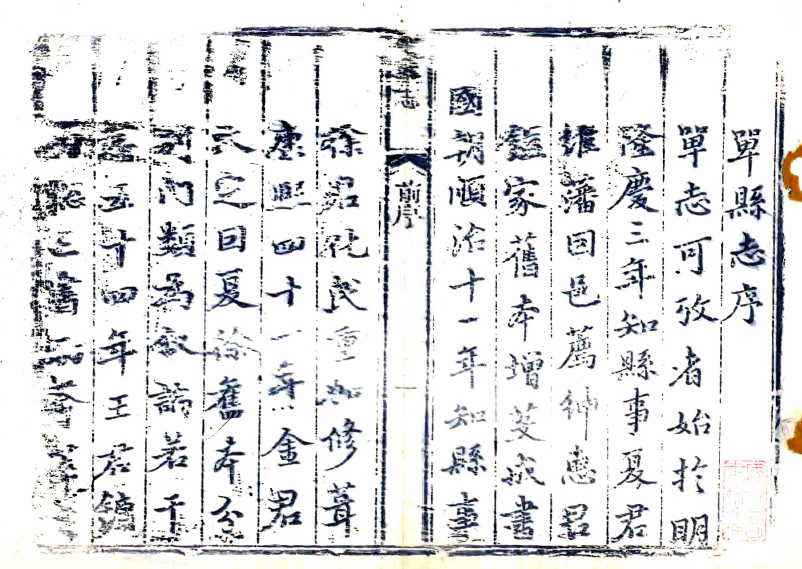 單縣志序
單志可攷者始於明
隆慶三年知縣事夏君
維藩因邑薦紳惠君
家舊本增芟成書
國朝順治十一年知縣事
志
前序
徐君化民重加修葺
康熙四十一年金君
天定因夏徐舊本分
列門類為
若干
五十四年王君鏞
舊